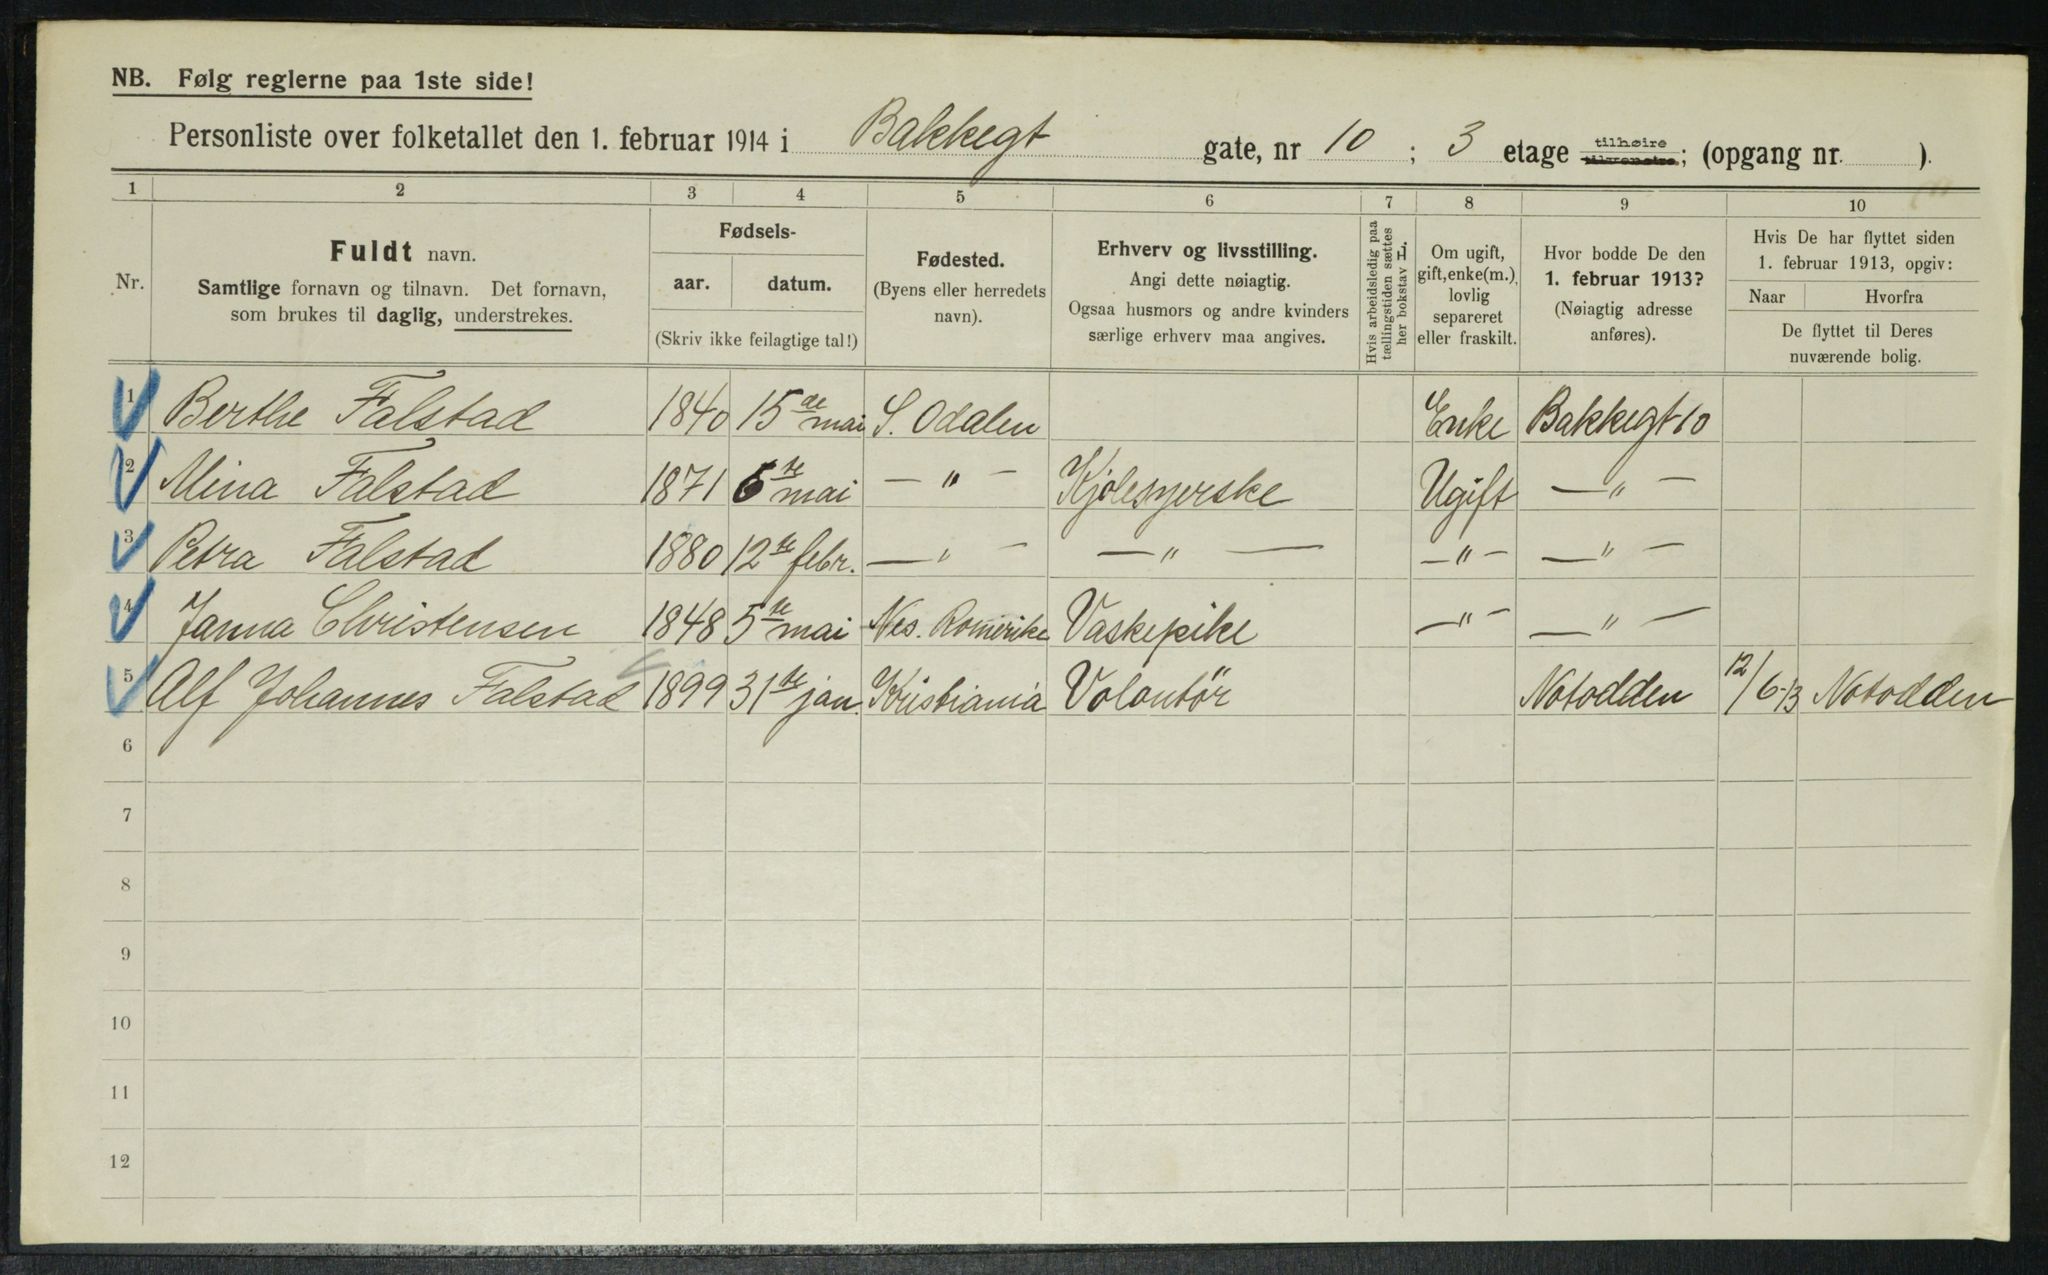 NB. Følg reglerne paa 1ste side!
Personliste over folketallet den 1. februar 1914 i Bakkegt gate, nr 10 ; 3 etage tilhøire tilvenstre; (opgang nr. ).
1 2 3 4 5 6 7 8 9 10
Nr.
Fuldt navn.
Samtlige fornavn og tilnavn. Det fornavn,
som brukes til daglig, understrekes.
Fødsels-
aar. datum.
(Skriv ikke feilagtige tal!)
Fødested.
(Byens eller herredets
navn).
Erhverv og livsstilling.
Angi dette nøiagtig.
Ogsaa husmors og andre kvinders
særlige erhverv maa angives.
Hvis arbeidsledig paa
tællingstiden sættes
her bokstav L.
Om ugift,
gift, enke(m.),
lovlig
separeret
eller fraskilt.
Hvor bodde De den
1. februar 1913?
(Nøiagtig adresse
anføres).
Hvis De har flyttet siden
1. februar 1913, opgiv:
Naar Hvorfra
De flyttet til Deres
nuværende bolig.
1 Berthe Falstad 1840 15de mai S. Odalen Enke Bakkegt 10
2 Mina Falstad 1871 6te mai — " — Kjolesyerske Ugift — " —
3 Petra Falstad 1880 12te febr. — " — — " — — " — — " —
4 Janna Christensen 1848 5te mai Nes. Romerike Vaskepike — " — — " —
5 Alf Johannes Falstad 1899 31te jan. Kristiania Volontør Notodden 12/6-13 Notodden
6
7
8
9
10
11
12